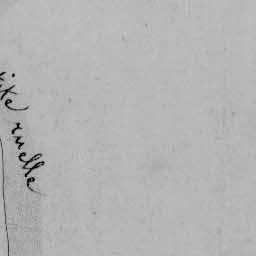 ite ruelle